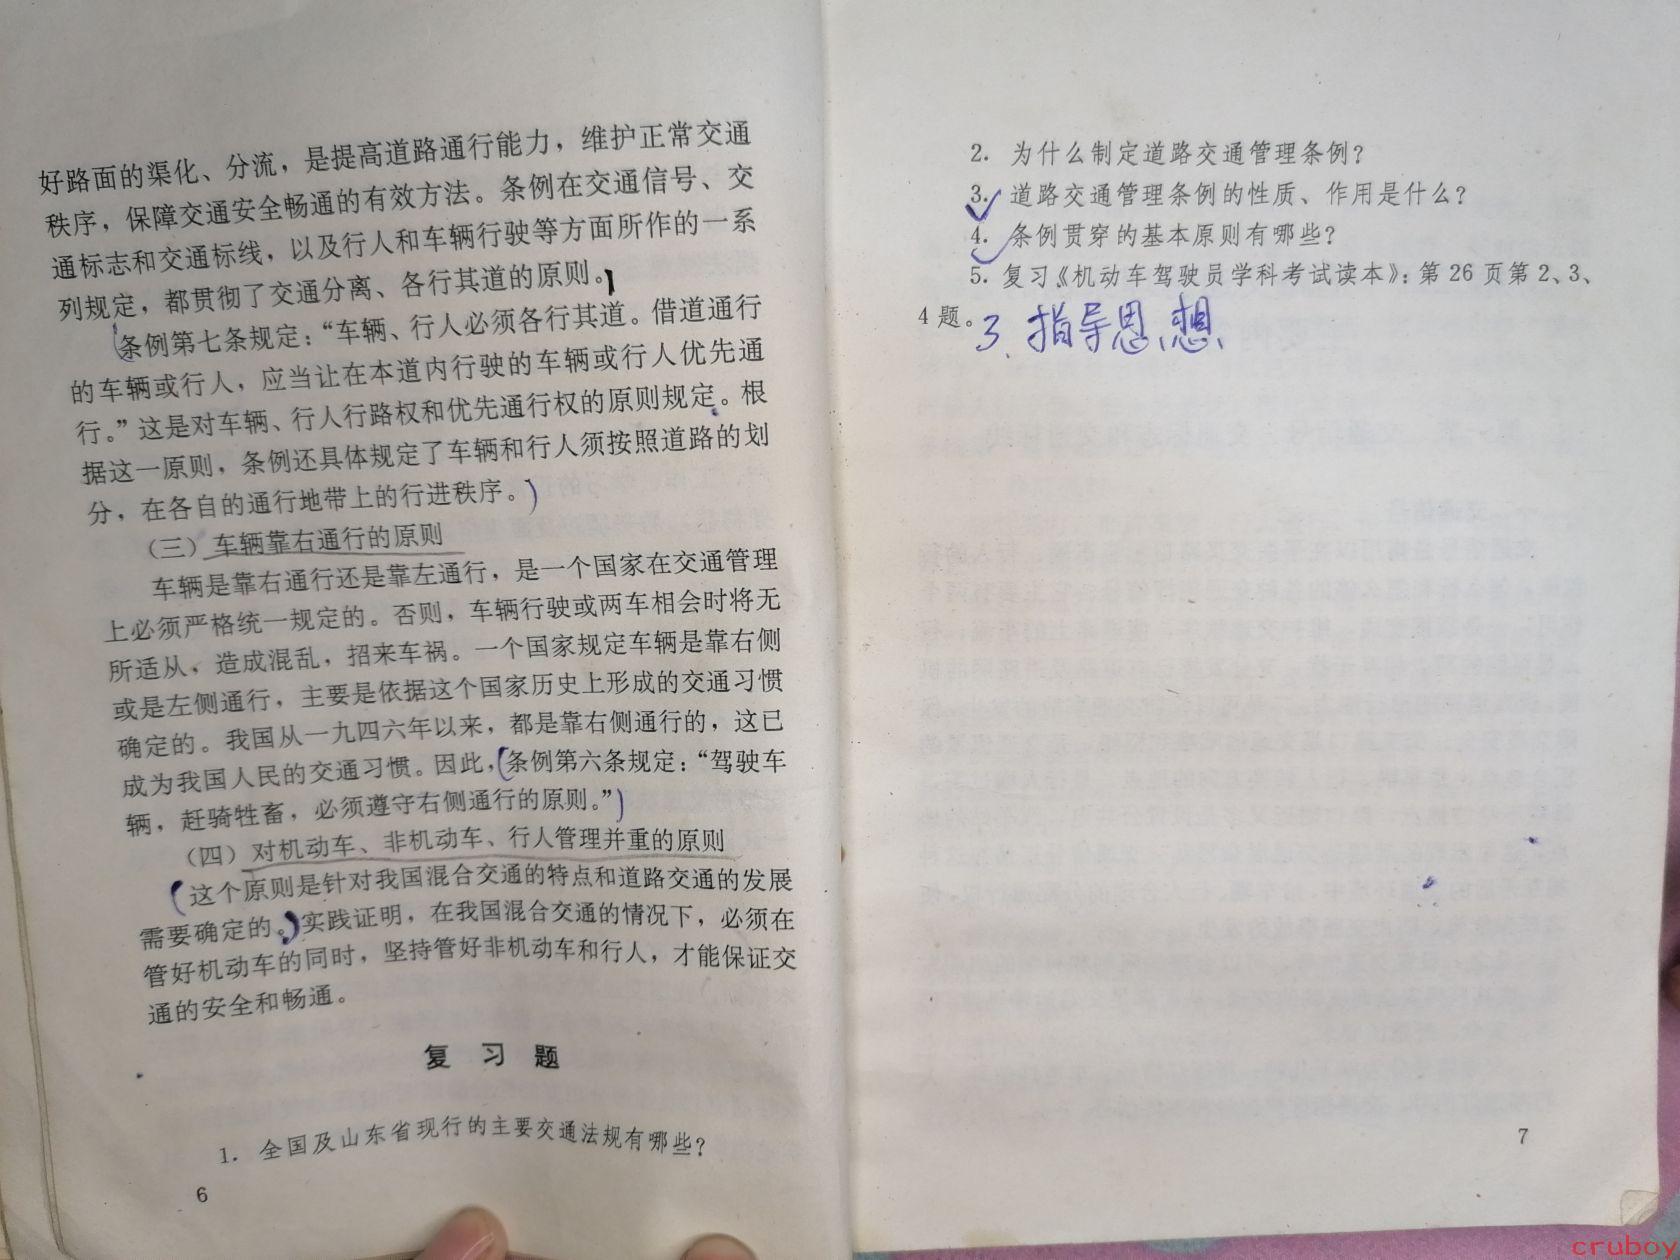 好路面的渠化、分流，是提高道路通行能力，维护正常交通
秩序，保障交通安全畅通的有效方法。条例在交通信号、交
通标志和交通标线，以及行人和车辆行驶等方面所作的一系
列规定，都贯彻了交通分离、各行其道的原则。
条例第七条规定：“车辆、行人必须各行其道。借道通行
的车辆或行人，应当让在本道内行驶的车辆或行人优先通
行。”这是对车辆、行人行路权和优先通行权的原则规定。根
据这一原则，条例还具体规定了车辆和行人须按照道路的划
分，在各自的通行地带上的行进秩序。)
（三）车辆靠右通行的原则
车辆是靠右通行还是靠左通行，是一个国家在交通管理
上必须严格统一规定的。否则，车辆行驶或两车相会时将无
所适从，造成混乱，招来车祸。一个国家规定车辆是靠右侧
或是左侧通行，主要是依据这个国家历史上形成的交通习惯
确定的。我国从一九四六年以来，都是靠右侧通行的，这已
成为我国人民的交通习惯。因此，(条例第六条规定：“驾驶车
辆，赶骑牲畜，必须遵守右侧通行的原则。”)
（四）对机动车、非机动车、行人管理并重的原则
(这个原则是针对我国混合交通的特点和道路交通的发展
需要确定的。)实践证明，在我国混合交通的情况下，必须在
管好机动车的同时，坚持管好非机动车和行人，才能保证交
通的安全和畅通。
复习题
1. 全国及山东省现行的主要交通法规有哪些？
6
2. 为什么制定道路交通管理条例？
3. 道路交通管理条例的性质、作用是什么？
4. 条例贯穿的基本原则有哪些？
5. 复习《机动车驾驶员学科考试读本》：第26页第2、3、
4题。
3、指导思想、
7
cruboy